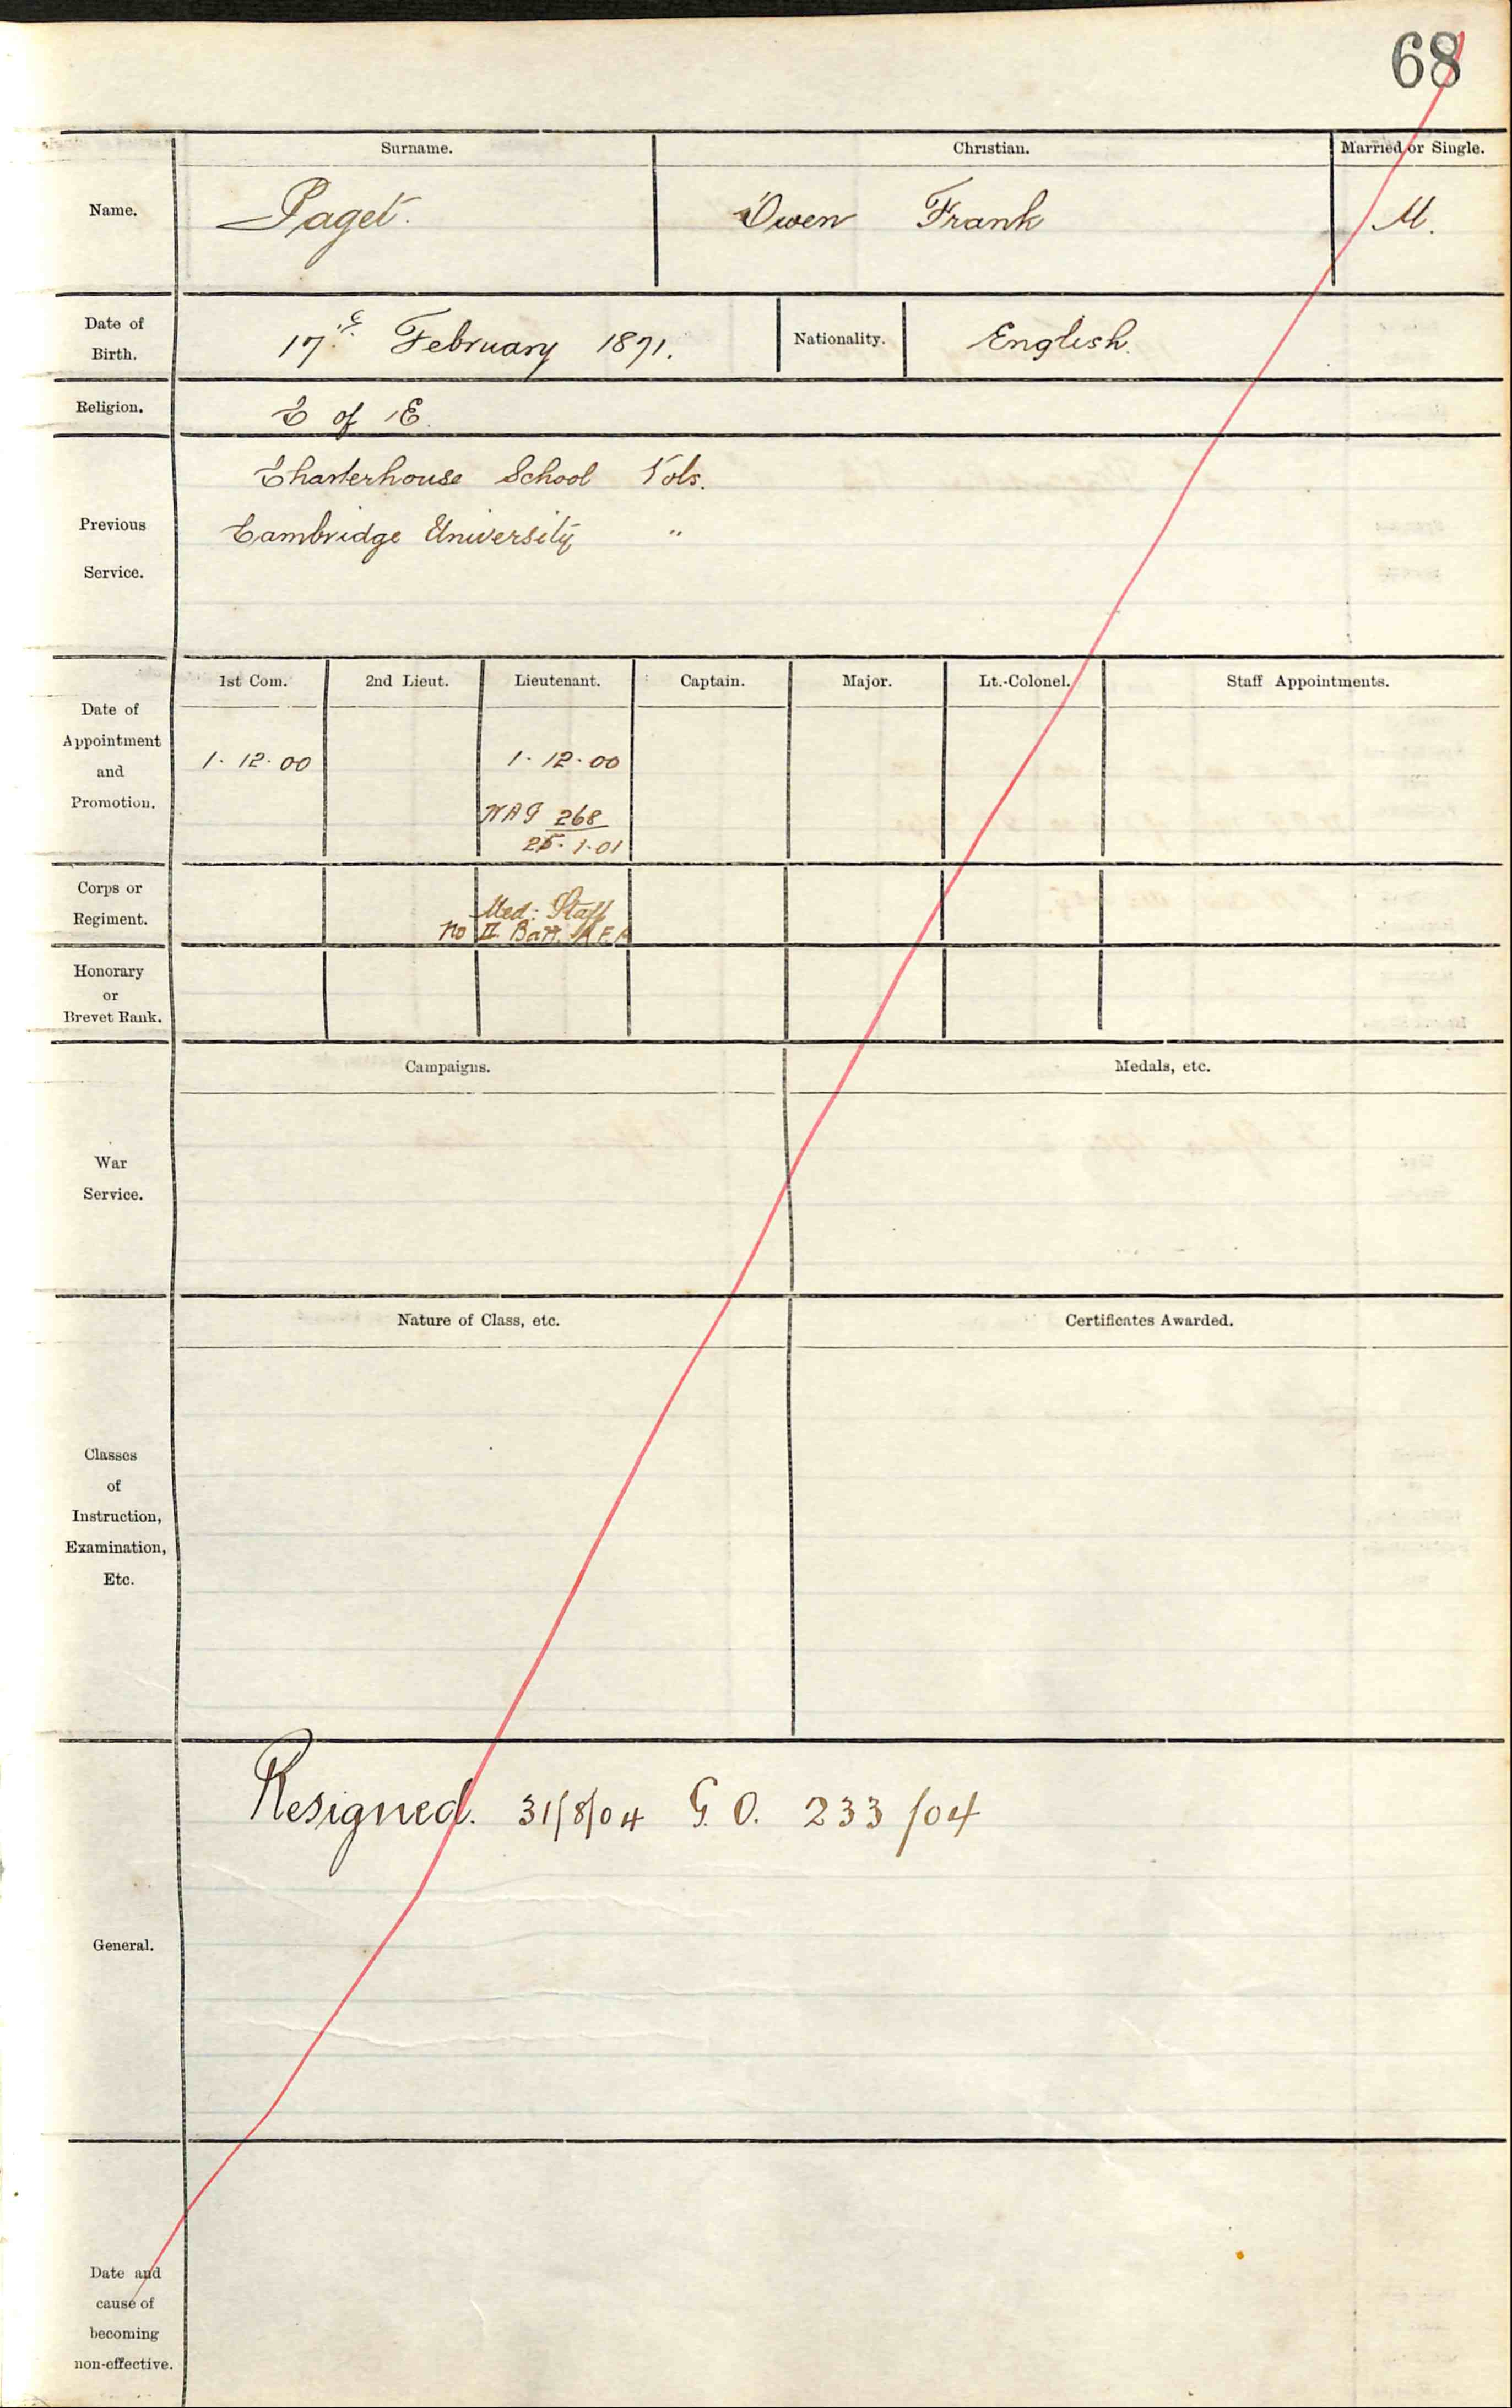 68
Surname. Christian. Married or Single.
Name. Paget. Owen Frank M.
Date of Birth. 17th February 1871. Nationality. English.
Religion. C of E.
Charterhouse School Vols.
Previous Cambridge University "
Service.
1st Com. 2nd Lieut. Lieutenant. Captain. Major. Lt.-Colonel. Staff Appointments.
Date of
Appointment
and 1.12.00 1.12.00
Promotion. WAG 268
25.1.01
Corps or Med: Staff
Regiment. No II Batt. A.F.A
Honorary
or
Brevet Rank.
Campaigns. Medals, etc.
War
Service.
Nature of Class, etc. Certificates Awarded.
Classes
of
Instruction,
Examination,
Etc.
Resigned. 31/8/04 G.O. 233/04
General.
Date and
cause of
becoming
non-effective.